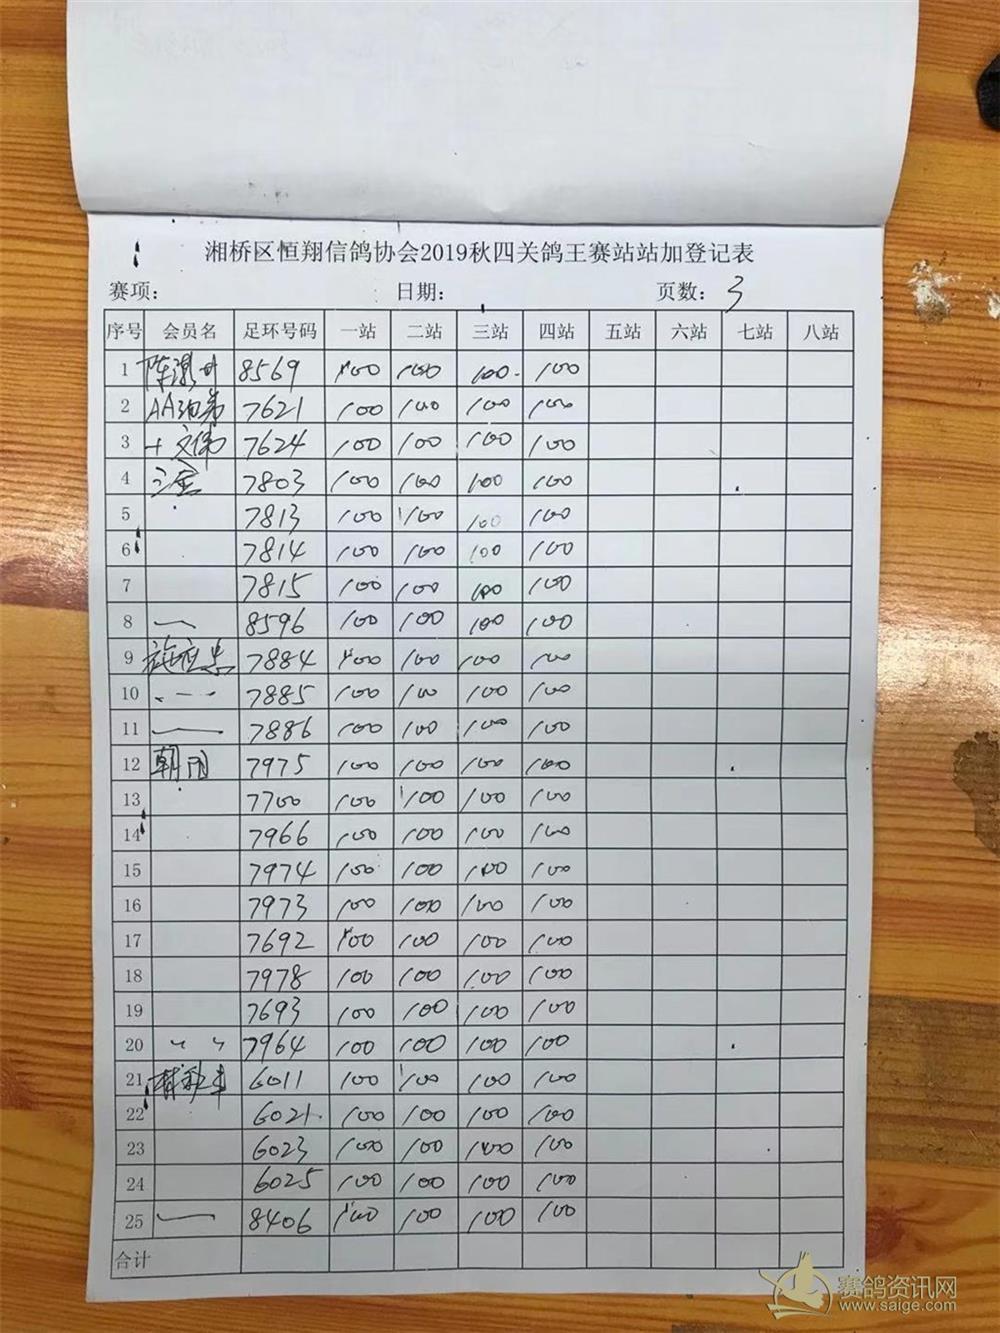 湘桥区恒翔信鸽协会2019秋四关鸽王赛站站加登记表
赛项: 日期: 页数: 3
序号 会员名 足环号码 一站 二站 三站 四站 五站 六站 七站 八站
1 8569 100 100 100 100
2 7621 100 100 100 100
3 7624 100 100 100 100
4 7803 100 100 100 100
5 7813 100 100 100 100
6 7814 100 100 100 100
7 7815 100 100 100 100
8 8596 100 100 100 100
9 7884 100 100 100 100
10 7885 100 100 100 100
11 7886 100 100 100 100
12 7975 100 100 100 100
13 7700 100 100 100 100
14 7966 100 100 100 100
15 7974 100 100 100 100
16 7973 100 100 100 100
17 7692 100 100 100 100
18 7978 100 100 100 100
19 7693 100 100 100 100
20 7964 100 100 100 100
21 6011 100 100 100 100
22 6021 100 100 100 100
23 6023 100 100 100 100
24 6025 100 100 100 100
25 8406 100 100 100 100
合计
赛鸽资讯网
www.saige.com